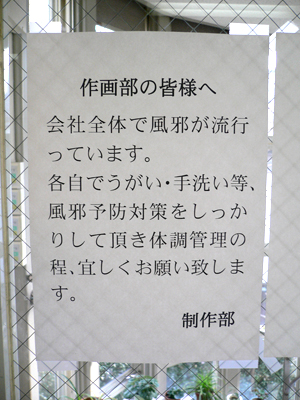 作画部の皆様へ
会社全体で風邪が流行
っています。
各自でうがい・手洗い等、
風邪予防対策をしっか
りして頂き体調管理の
程、宜しくお願い致しま
す。
制作部